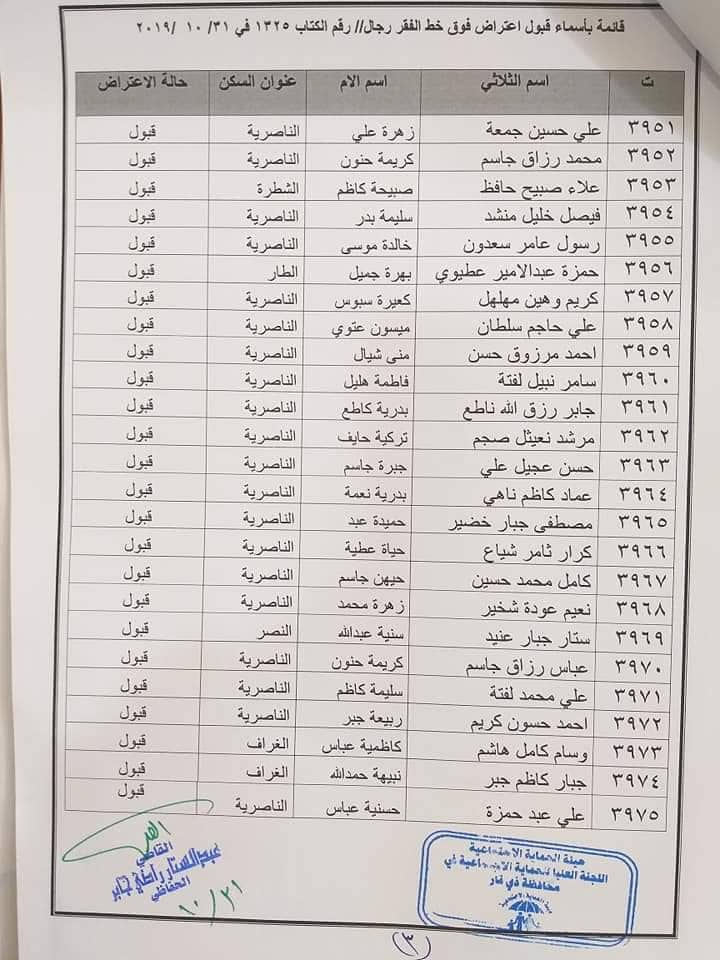 قائمة بأسماء قبول اعتراض فوق خط الفقر رجال// رقم الكتاب ١٣٢٥ في ٣١/ ١٠ /٢٠١٩
ت اسم الثلاثي اسم الام عنوان السكن حالة الاعتراض
٣٩٥١ علي حسين جمعة زهرة علي الناصرية قبول
٣٩٥٢ محمد رزاق جاسم كريمة حنون الناصرية قبول
٣٩٥٣ علاء صبيح حافظ صبيحة كاظم الشطرة قبول
٣٩٥٤ فيصل خليل منشد سليمة بدر الناصرية قبول
٣٩٥٥ رسول عامر سعدون خالدة موسى الناصرية قبول
٣٩٥٦ حمزة عبدالامير عطيوي بهرة جميل الطار قبول
٣٩٥٧ كريم وهين مهلهل كعيرة سبوس الناصرية قبول
٣٩٥٨ علي حاجم سلطان ميسون عتوي الناصرية قبول
٣٩٥٩ احمد مرزوق حسن منى شيال الناصرية قبول
٣٩٦٠ سامر نبيل لفتة فاطمة هليل الناصرية قبول
٣٩٦١ جابر رزق الله ناطع بدرية كاطع الناصرية قبول
٣٩٦٢ مرشد نعيثل صجم تركية حايف الناصرية قبول
٣٩٦٣ حسن عجيل علي جبرة جاسم الناصرية قبول
٣٩٦٤ عماد كاظم ناهي بدرية نعمة الناصرية قبول
٣٩٦٥ مصطفى جبار خضير حميدة عبد الناصرية قبول
٣٩٦٦ كرار ثامر شياع حياة عطية الناصرية قبول
٣٩٦٧ كامل محمد حسين حيهن جاسم الناصرية قبول
٣٩٦٨ نعيم عودة شخير زهرة محمد الناصرية قبول
٣٩٦٩ ستار جبار عنيد سنية عبدالله النصر قبول
٣٩٧٠ عباس رزاق جاسم كريمة حنون الناصرية قبول
٣٩٧١ علي محمد لفتة سليمة كاظم الناصرية قبول
٣٩٧٢ احمد حسون كريم ربيعة جبر الناصرية قبول
٣٩٧٣ وسام كامل هاشم كاظمية عباس الغراف قبول
٣٩٧٤ جبار كاظم جبر نبيهة حمدالله الغراف قبول
٣٩٧٥ علي عبد حمزة حسنية عباس الناصرية قبول
هيئة الحماية الاجتماعية
اللجنة العليا للحماية الاجتماعية في
محافظة ذي قار
القاضي
عبدالستار راضي جابر
الخفاجي
١٠/٣١
(٣)